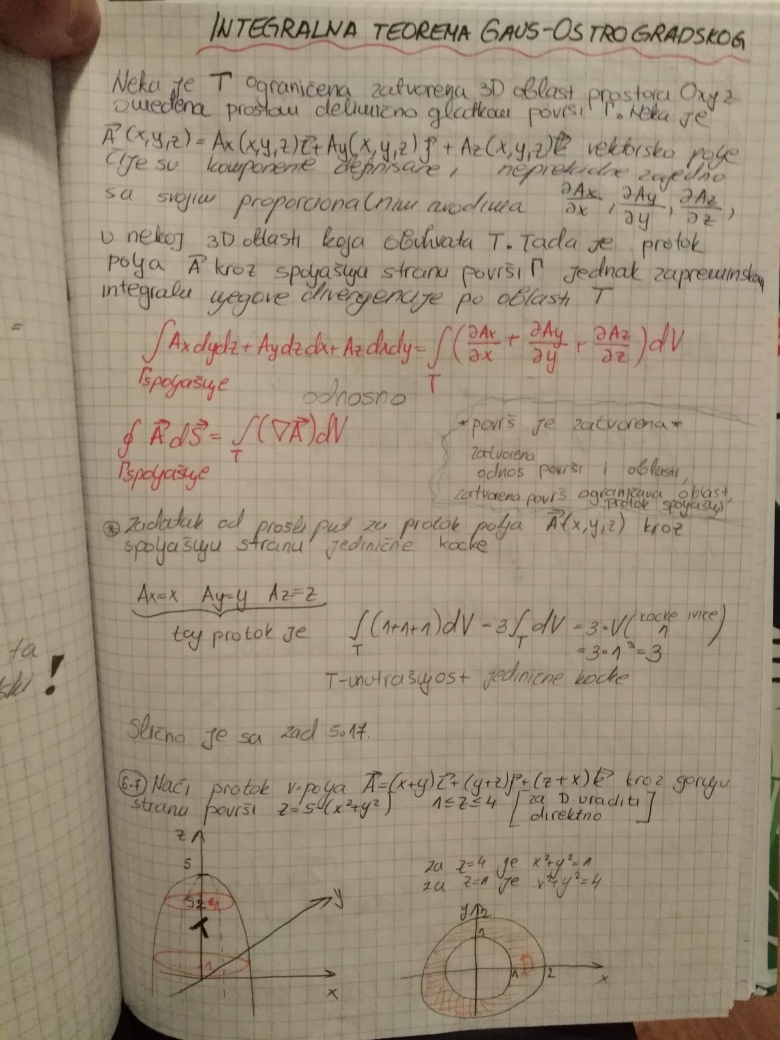 INTEGRALNA TEOREMA GAUS-OSTROGRADSKOG
Neka je T ograničena zatvorena 3D oblast prostora Oxyz
omeđena prostom delimično glatkom površi Γ. Neka je
A⃗(x,y,z) = Ax(x,y,z)i⃗ + Ay(x,y,z)j⃗ + Az(x,y,z)k⃗ vektorsko polje
čije su komponente definisane, neprekidne zajedno
sa svojim proporcionalnim izvodima ∂Ax/∂x, ∂Ay/∂y, ∂Az/∂z,
u nekoj 3D oblasti koja obuhvata T. Tada je protok
polja A⃗ kroz spoljašnju stranu površi Γ jednak zapreminskom
integralu njegove divergencije po oblasti T
∫ Ax dydz + Ay dzdx + Az dxdy = ∫ (∂Ax/∂x + ∂Ay/∂y + ∂Az/∂z) dV
Γspoljašnje T
odnosno
∮ A⃗ dS⃗ = ∫ (∇A⃗) dV
T
Γspoljašnje
*površ je zatvorena*
zatvorena
odnos površi i oblasti,
zatvorena površ ograničava oblast,
protok spoljašnji
* Zadatak od prošli put za protok polja A⃗(x,y,z) kroz
spoljašnju stranu jedinične kocke
Ax=x Ay=y Az=z
taj protok je ∫ (1+1+1)dV = 3∫ dV = 3·V(kocke ivice 1)
T T
= 3·1³ = 3
T-unutrašnjost jedinične kocke
Slično je sa zad 5.17.
Naći protok v.polja A⃗=(x+y)i⃗+(y+z)j⃗+(z+x)k⃗ kroz gornju
stranu površi z=5-(x²+y²) 1≤z≤4 [za D. uraditi
direktno]
za z=4 je x²+y²=1
za z=1 je x²+y²=4
z
5
4
1
y
x
y
2
1
1
D
2
x
=
ta
ski !